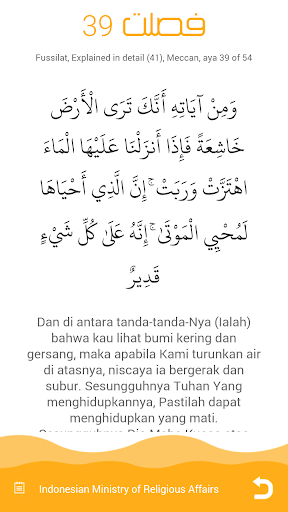 39 فصلت
Fussilat, Explained in detail (41), Meccan, aya 39 of 54
وَمِنْ آيَاتِهِ أَنَّكَ تَرَى الْأَرْضَ
خَاشِعَةً فَإِذَا أَنزَلْنَا عَلَيْهَا الْمَاءَ
اهْتَزَّتْ وَرَبَتْ ۚ إِنَّ الَّذِي أَحْيَاهَا
لَمُحْيِي الْمَوْتَىٰ ۚ إِنَّهُ عَلَىٰ كُلِّ شَيْءٍ
قَدِيرٌ
Dan di antara tanda-tanda-Nya (Ialah)
bahwa kau lihat bumi kering dan
gersang, maka apabila Kami turunkan air
di atasnya, niscaya ia bergerak dan
subur. Sesungguhnya Tuhan Yang
menghidupkannya, Pastilah dapat
menghidupkan yang mati.
Sesungguhnya Dia Maha Kuasa atas
Indonesian Ministry of Religious Affairs